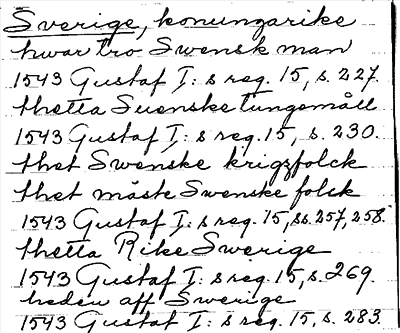 Sverige, konungarike
hwar tro Swensk man
1543 Gustaf I: s reg. 15, s. 227.
thetta Suenske tungomåll
1543 Gustaf I: s reg. 15, s. 230.
thet Swenske krigzfolck
thet måste Swenske folck
1543 Gustaf I: s reg. 15, ss. 257, 258.
thetta Rike Swerige
1543 Gustaf I: s reg. 15, s. 269.
heden aff Swerige
1543 Gustaf I: s reg. 15, s. 283